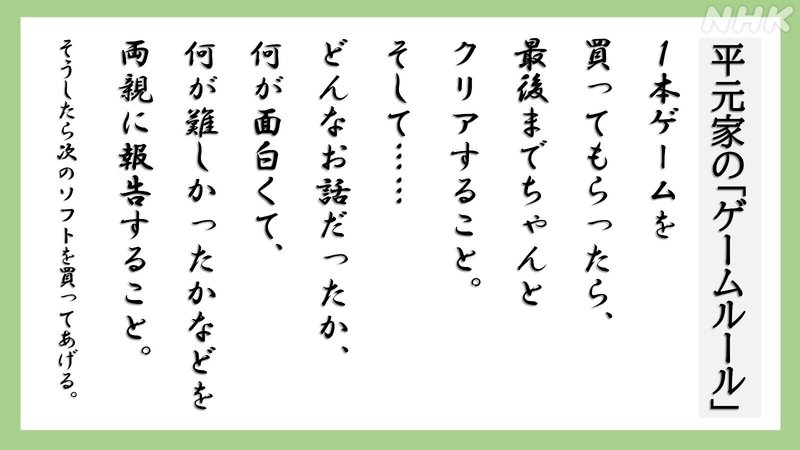 NHK
平元家の「ゲームルール」
1本ゲームを
買ってもらったら、
最後までちゃんと
クリアすること。
そして……
どんなお話だったか、
何が面白くて、
何が難しかったかなどを
両親に報告すること。
そうしたら次のソフトを買ってあげる。